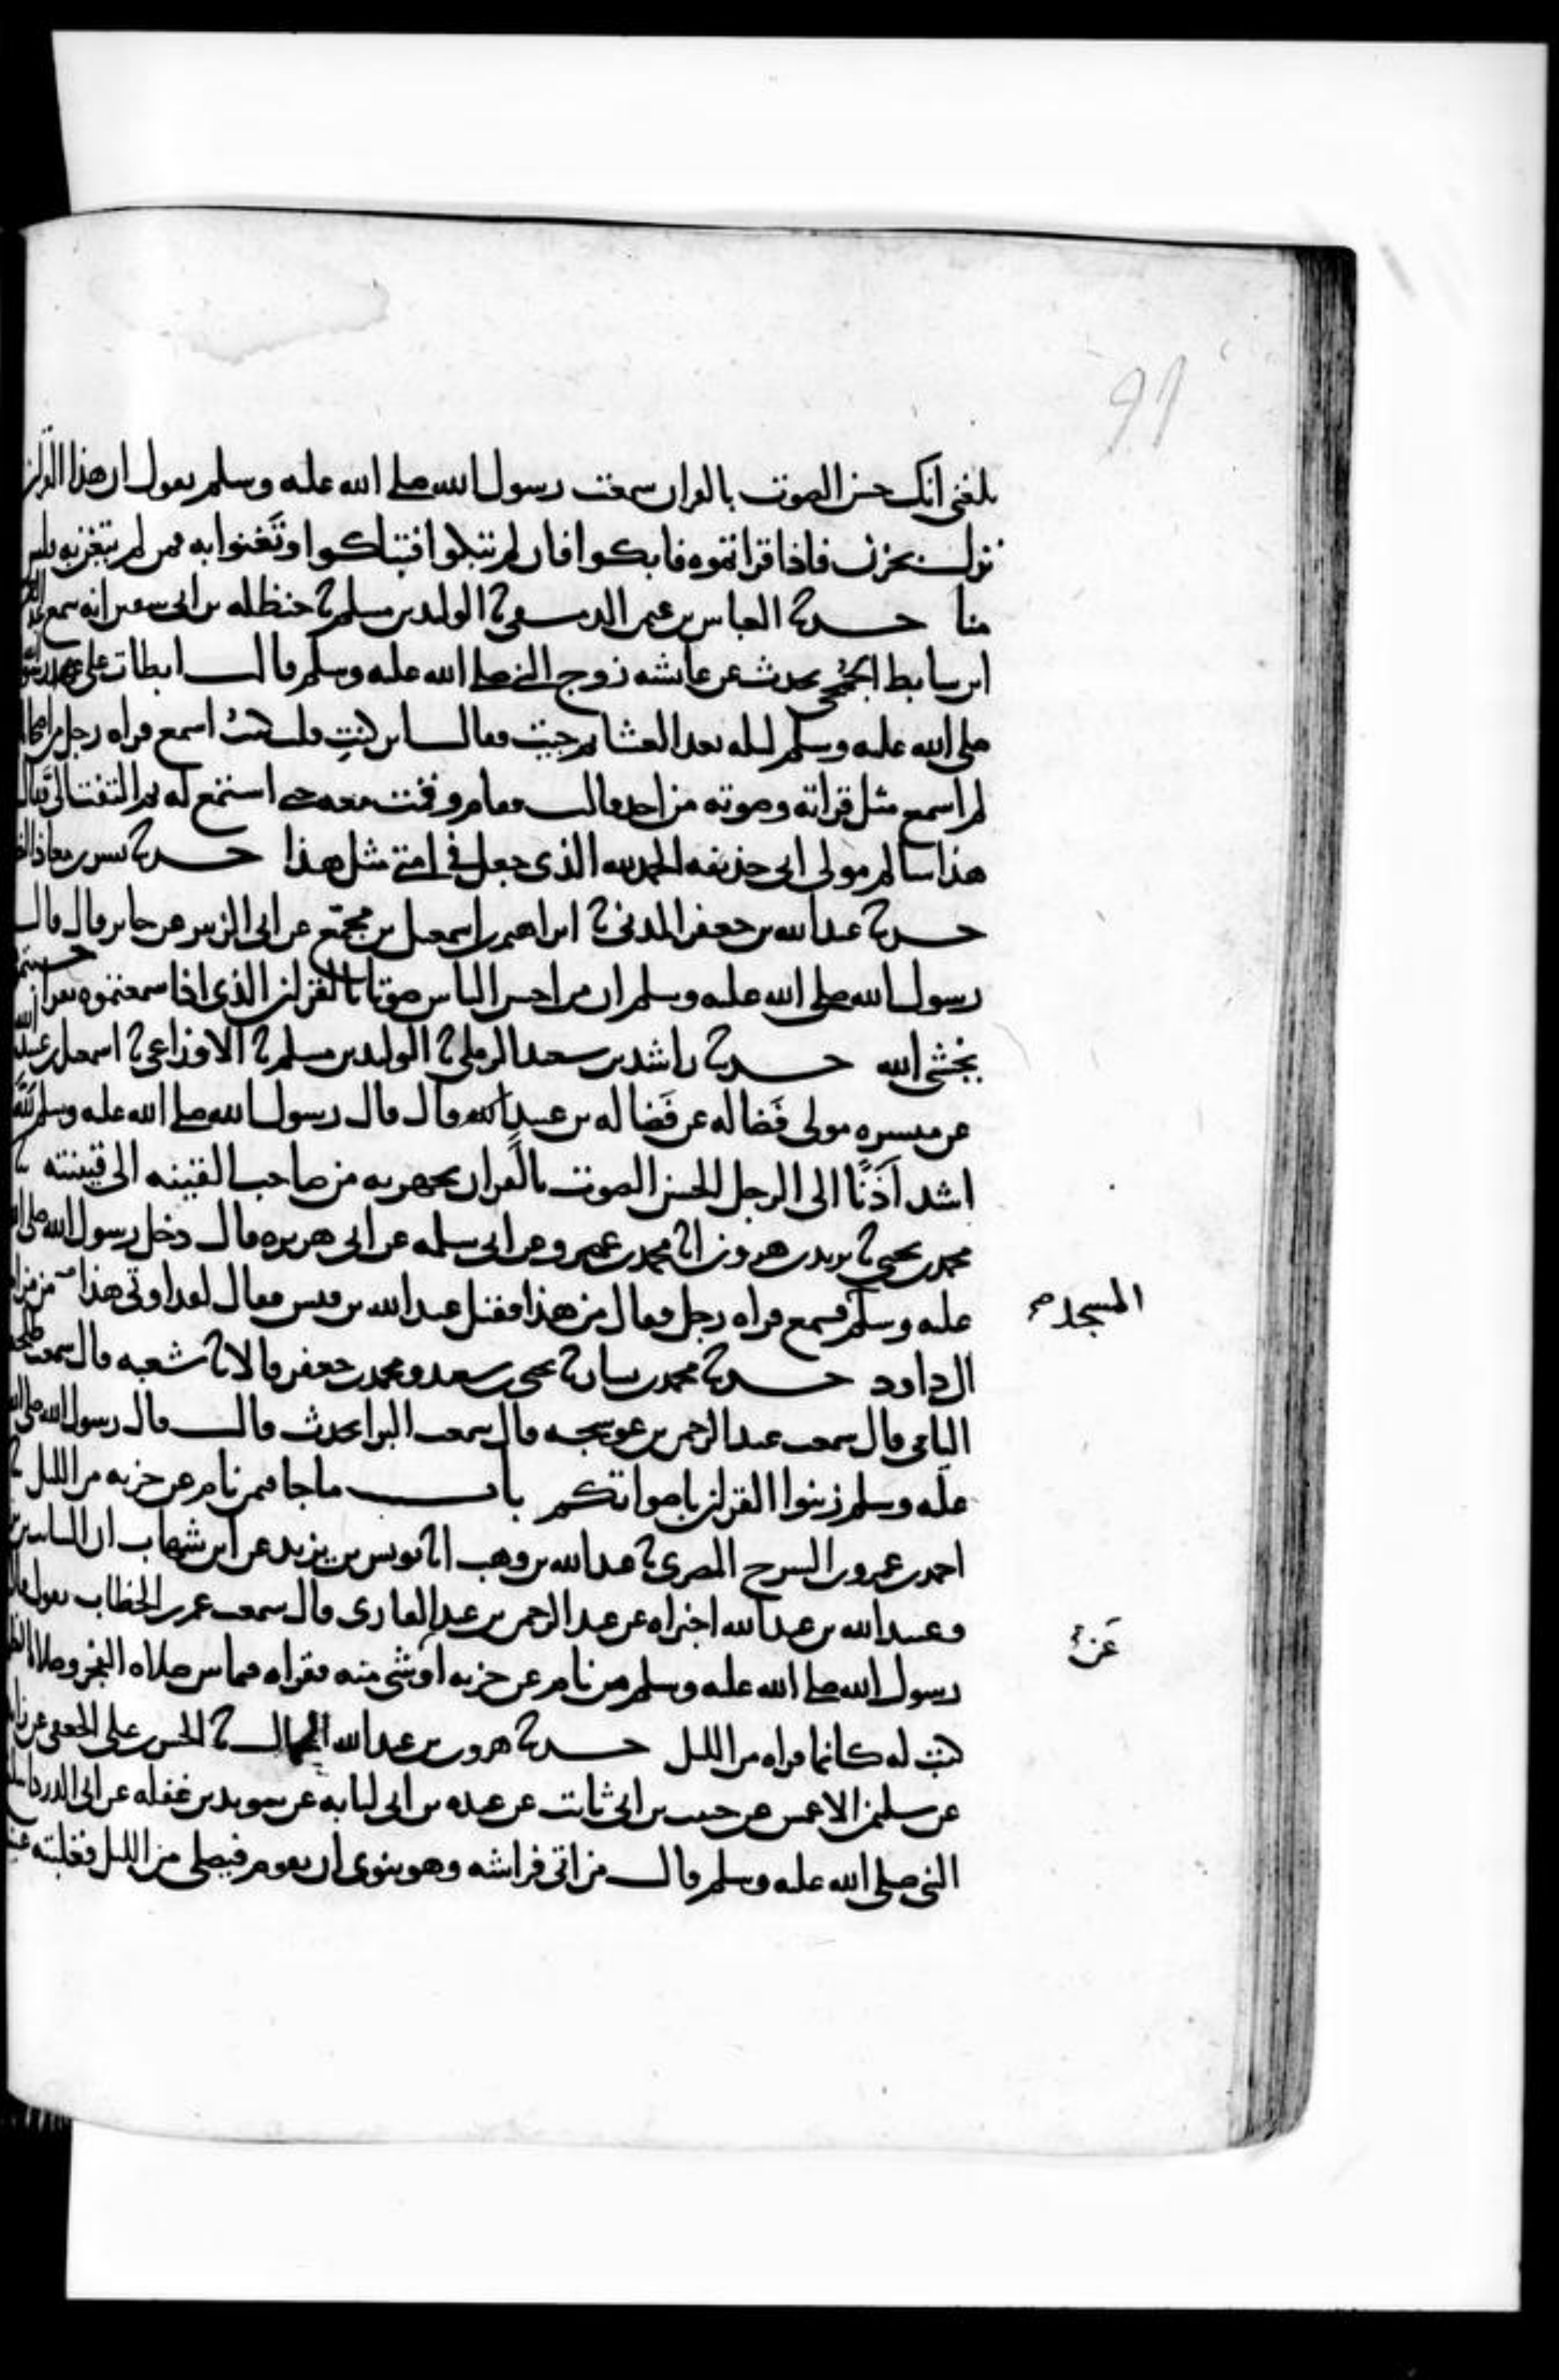 91
بلغني انك حسن الصوت بالقران سمعت رسول الله صلى الله عليه وسلم يقول ان هذا القران
نزل بحزن فاذا قراتموه فابكوا فان لم تبكوا فتباكوا وتَغنوا به فمن لم يتغن به فليس
منا حدثنا العباس بن عثمن الدمشقي نا الوليد بن مسلم نا حنظله بن ابي سفين انه سمع عبد الرحمن
ابن سابط الجُمَحي يحدث عن عائشه زوج النبي صلى الله عليه وسلم قالت ابطات على عهد رسول الله
صلى الله عليه وسلم ليله بعد العشا ثم جيت فقال اين كنتِ قلت كنتُ اسمع قراه رجل من اصحابك
لم اسمع مثل قراته وصوته من احد قالت فقام وقمت معه حتى استمع له ثم التفت اليَّ فقال
هذا سالم مولى ابي حذيفه الحمد لله الذي جعل في امتي مثل هذا حدثنا بشر بن معاذ الضرير
حدثنا عبد الله بن جعفر المدني نا ابراهيم بن اسمعيل بن مجمّع عن ابي الزبير عن جابر قال قال
رسول الله صلى الله عليه وسلم ان من احسن الناس صوتا بالقران الذي اذا سمعتموه يقرا حسبتموه
يخشى الله حدثنا راشد بن سعيد الرملي نا الوليد بن مسلم نا الاوزاعي نا اسمعيل بن عبيد الله
عن ميسره مولى فَضاله عن فَضاله بن عبيد قال قال رسول الله صلى الله عليه وسلم لَلّهُ
اشد اَذَنًا الى الرجل الحسن الصوت بالقران يجهر به من صاحب القينه الى قينته نا
محمد بن يحيى نا يزيد بن هرون انا محمد بن عمرو عن ابي سلمه عن ابي هريره قال دخل رسول الله صلى الله
عليه وسلم فسمع قراه رجل فقال من هذا فقيل عبد الله بن قيس فقال لقد اوتي هذا من مزامير
المسجد
ال داود حدثنا محمد بن بشار نا يحيى بن سعيد ومحمد بن جعفر قالا نا شعبه قال سمعت طلحه
اليامي قال سمعت عبد الرحمن بن عوسجه قال سمعت البرا يحدث قال قال رسول الله صلى الله
عليه وسلم زينوا القران باصواتكم باب ما جا فيمن نام عن حزبه من الليل نا
احمد بن عمرو بن السرح المصري نا عبد الله بن وهب انا يونس بن يزيد عن ابن شهاب ان السايب بن يزيد
وعبيد الله بن عبد الله اخبراه عن عبد الرحمن بن عبد القاري قال سمعت عمر بن الخطاب يقول قال
رسول الله صلى الله عليه وسلم من نام عن حزبه او شي منه فقراه فيما بين صلاه الفجر وصلاه الظهر
عَنْ
كتب له كانما قراه من الليل حدثنا هرون بن عبد الله الحمال نا الحسين بن علي الجعفي عن زايده
عن سليمن الاعمش عن حبيب بن ابي ثابت عن عبده بن ابي لبابه عن سويد بن غفله عن ابي الدرداء
النبي صلى الله عليه وسلم قال من اتى فراشه وهو ينوي ان يقوم فيصلي من الليل فغلبته